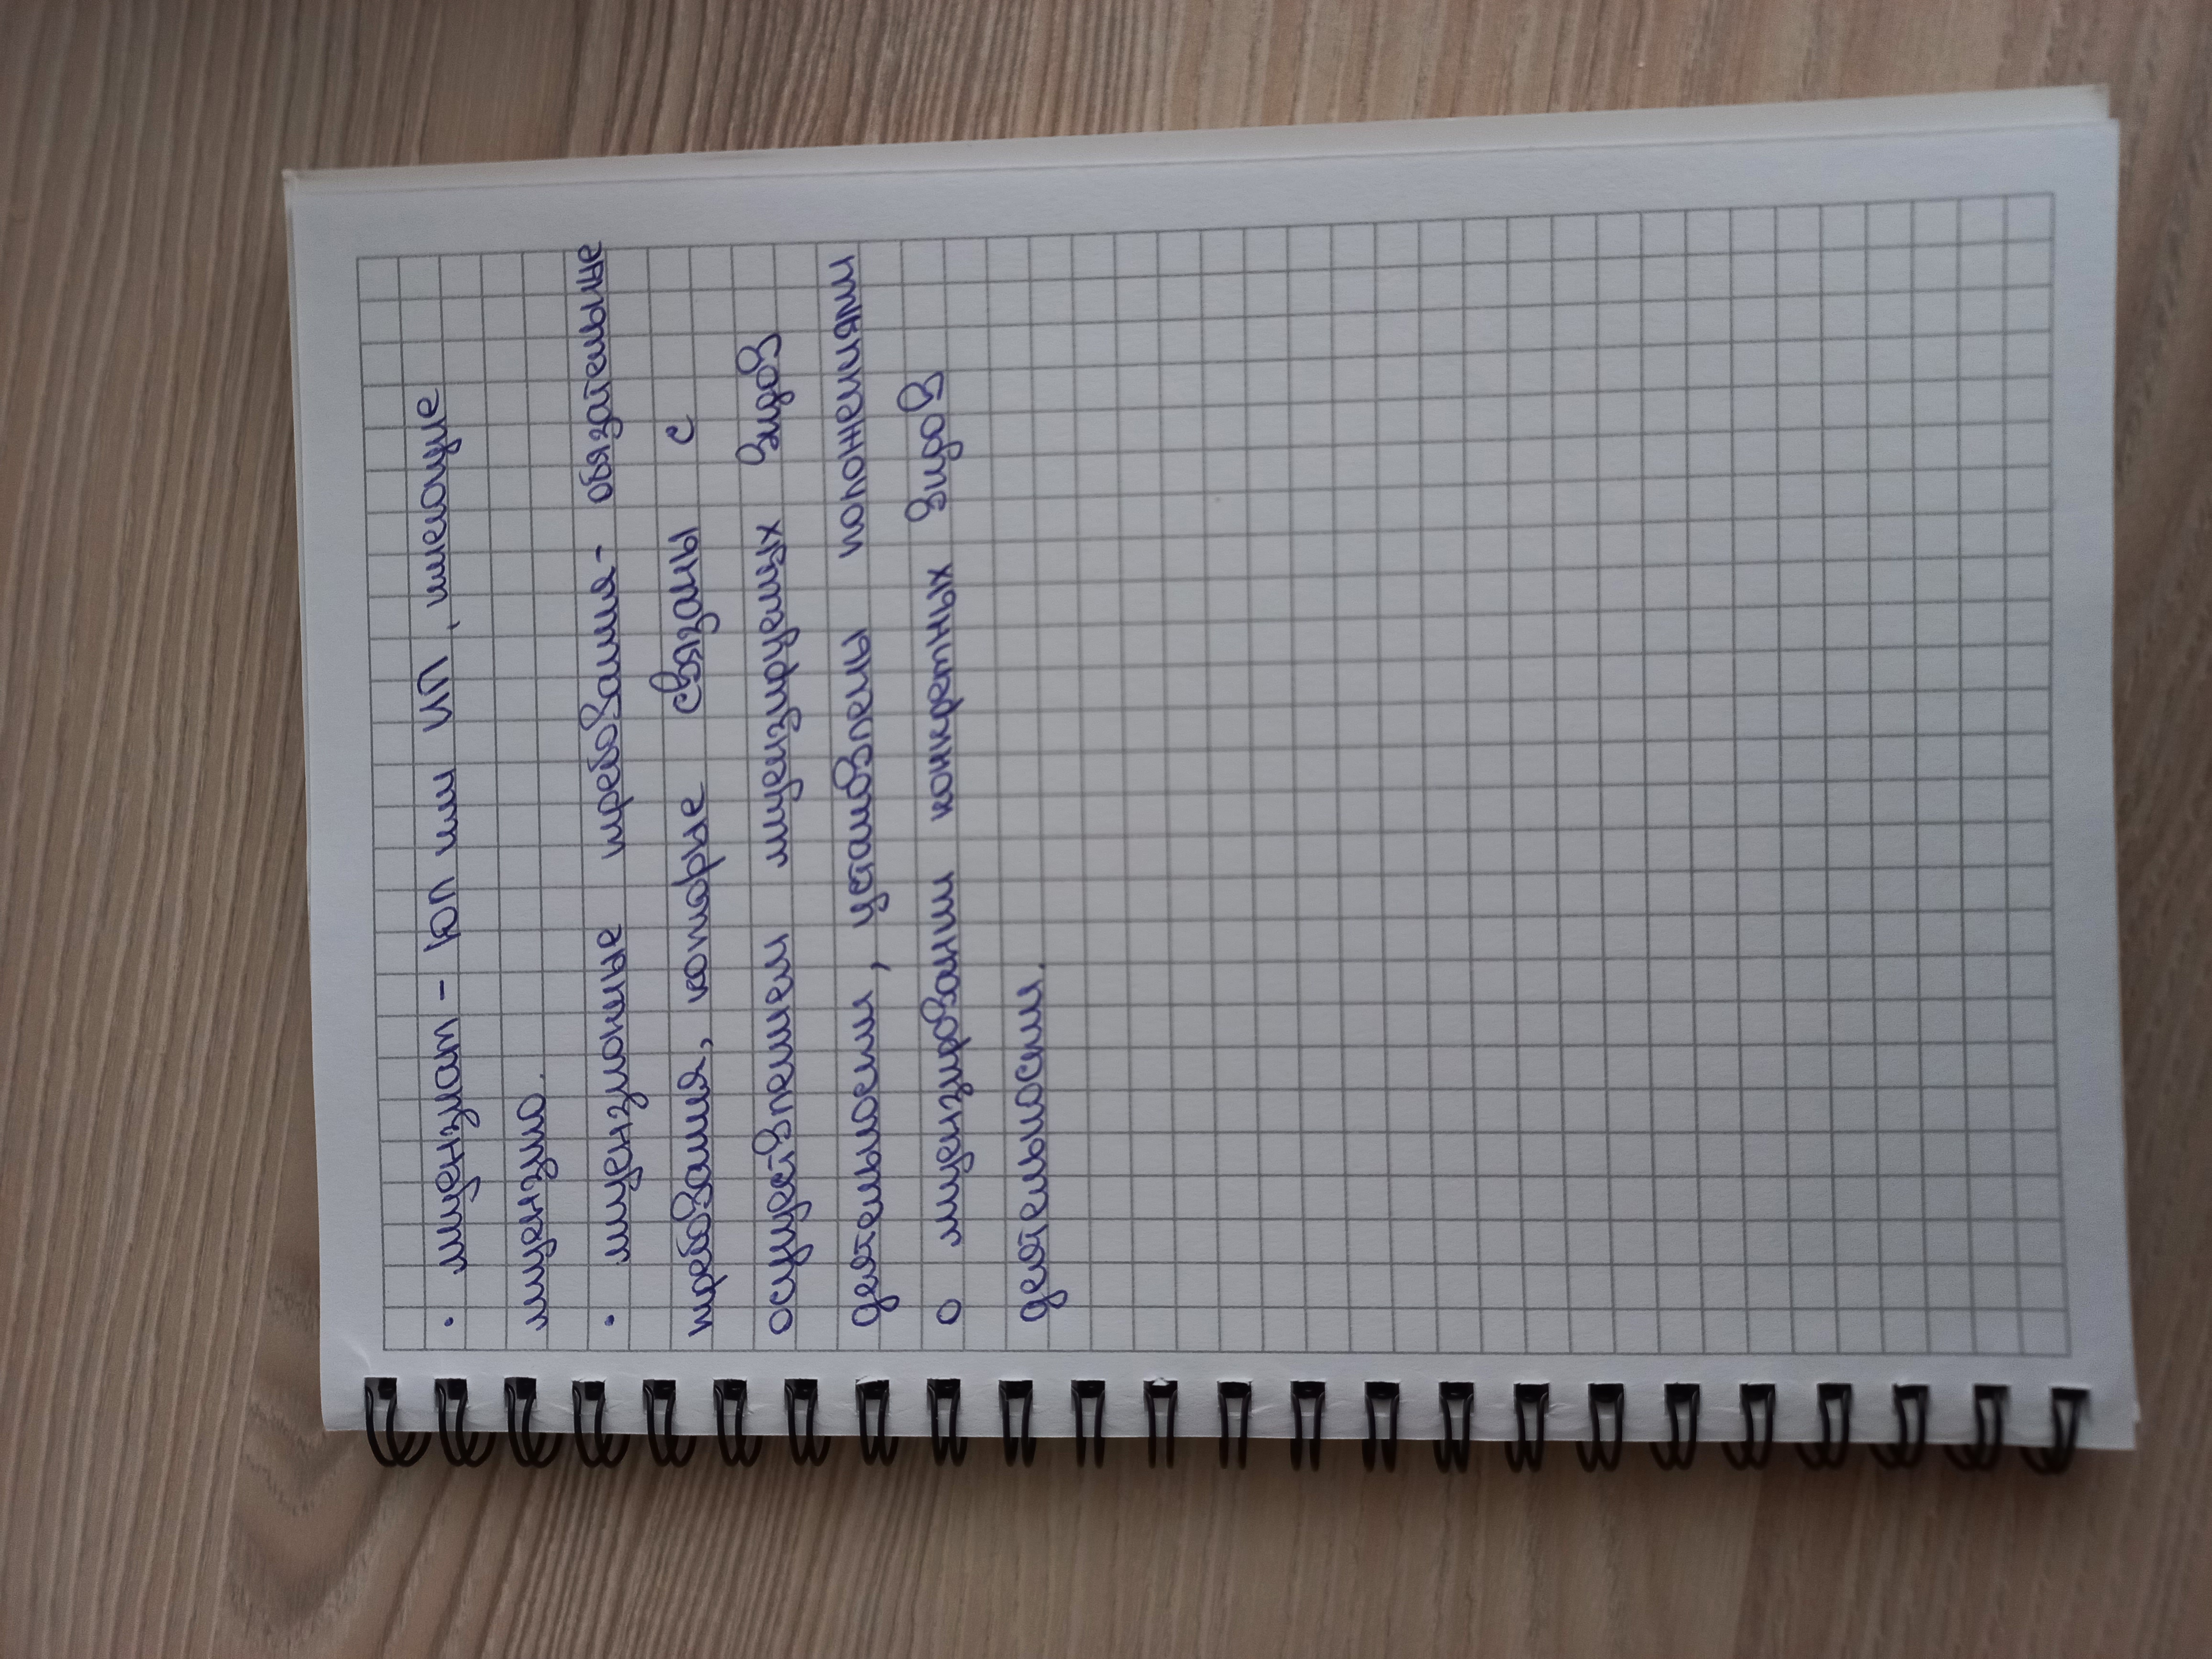 · лицензиат - ЮЛ или ИП, имеющие
лицензию.
· лицензионные требования - обязательные
требования, которые связаны с
осуществлением лицензируемых видов
деятельности, установлены положениями
о лицензировании конкретных видов
деятельности.